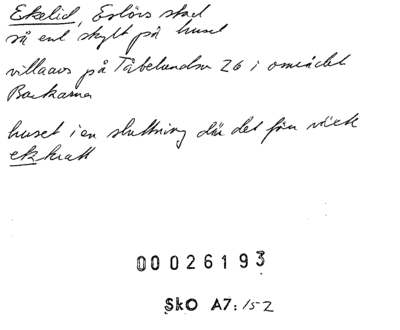 Ekelid, Eslövs stad
så enl skylt på huset
villanavn på Tåbelundsv 26 i området
Backarna
huset i en sluttning där det förr växte
ekkratt
00026193
SkO A7:152